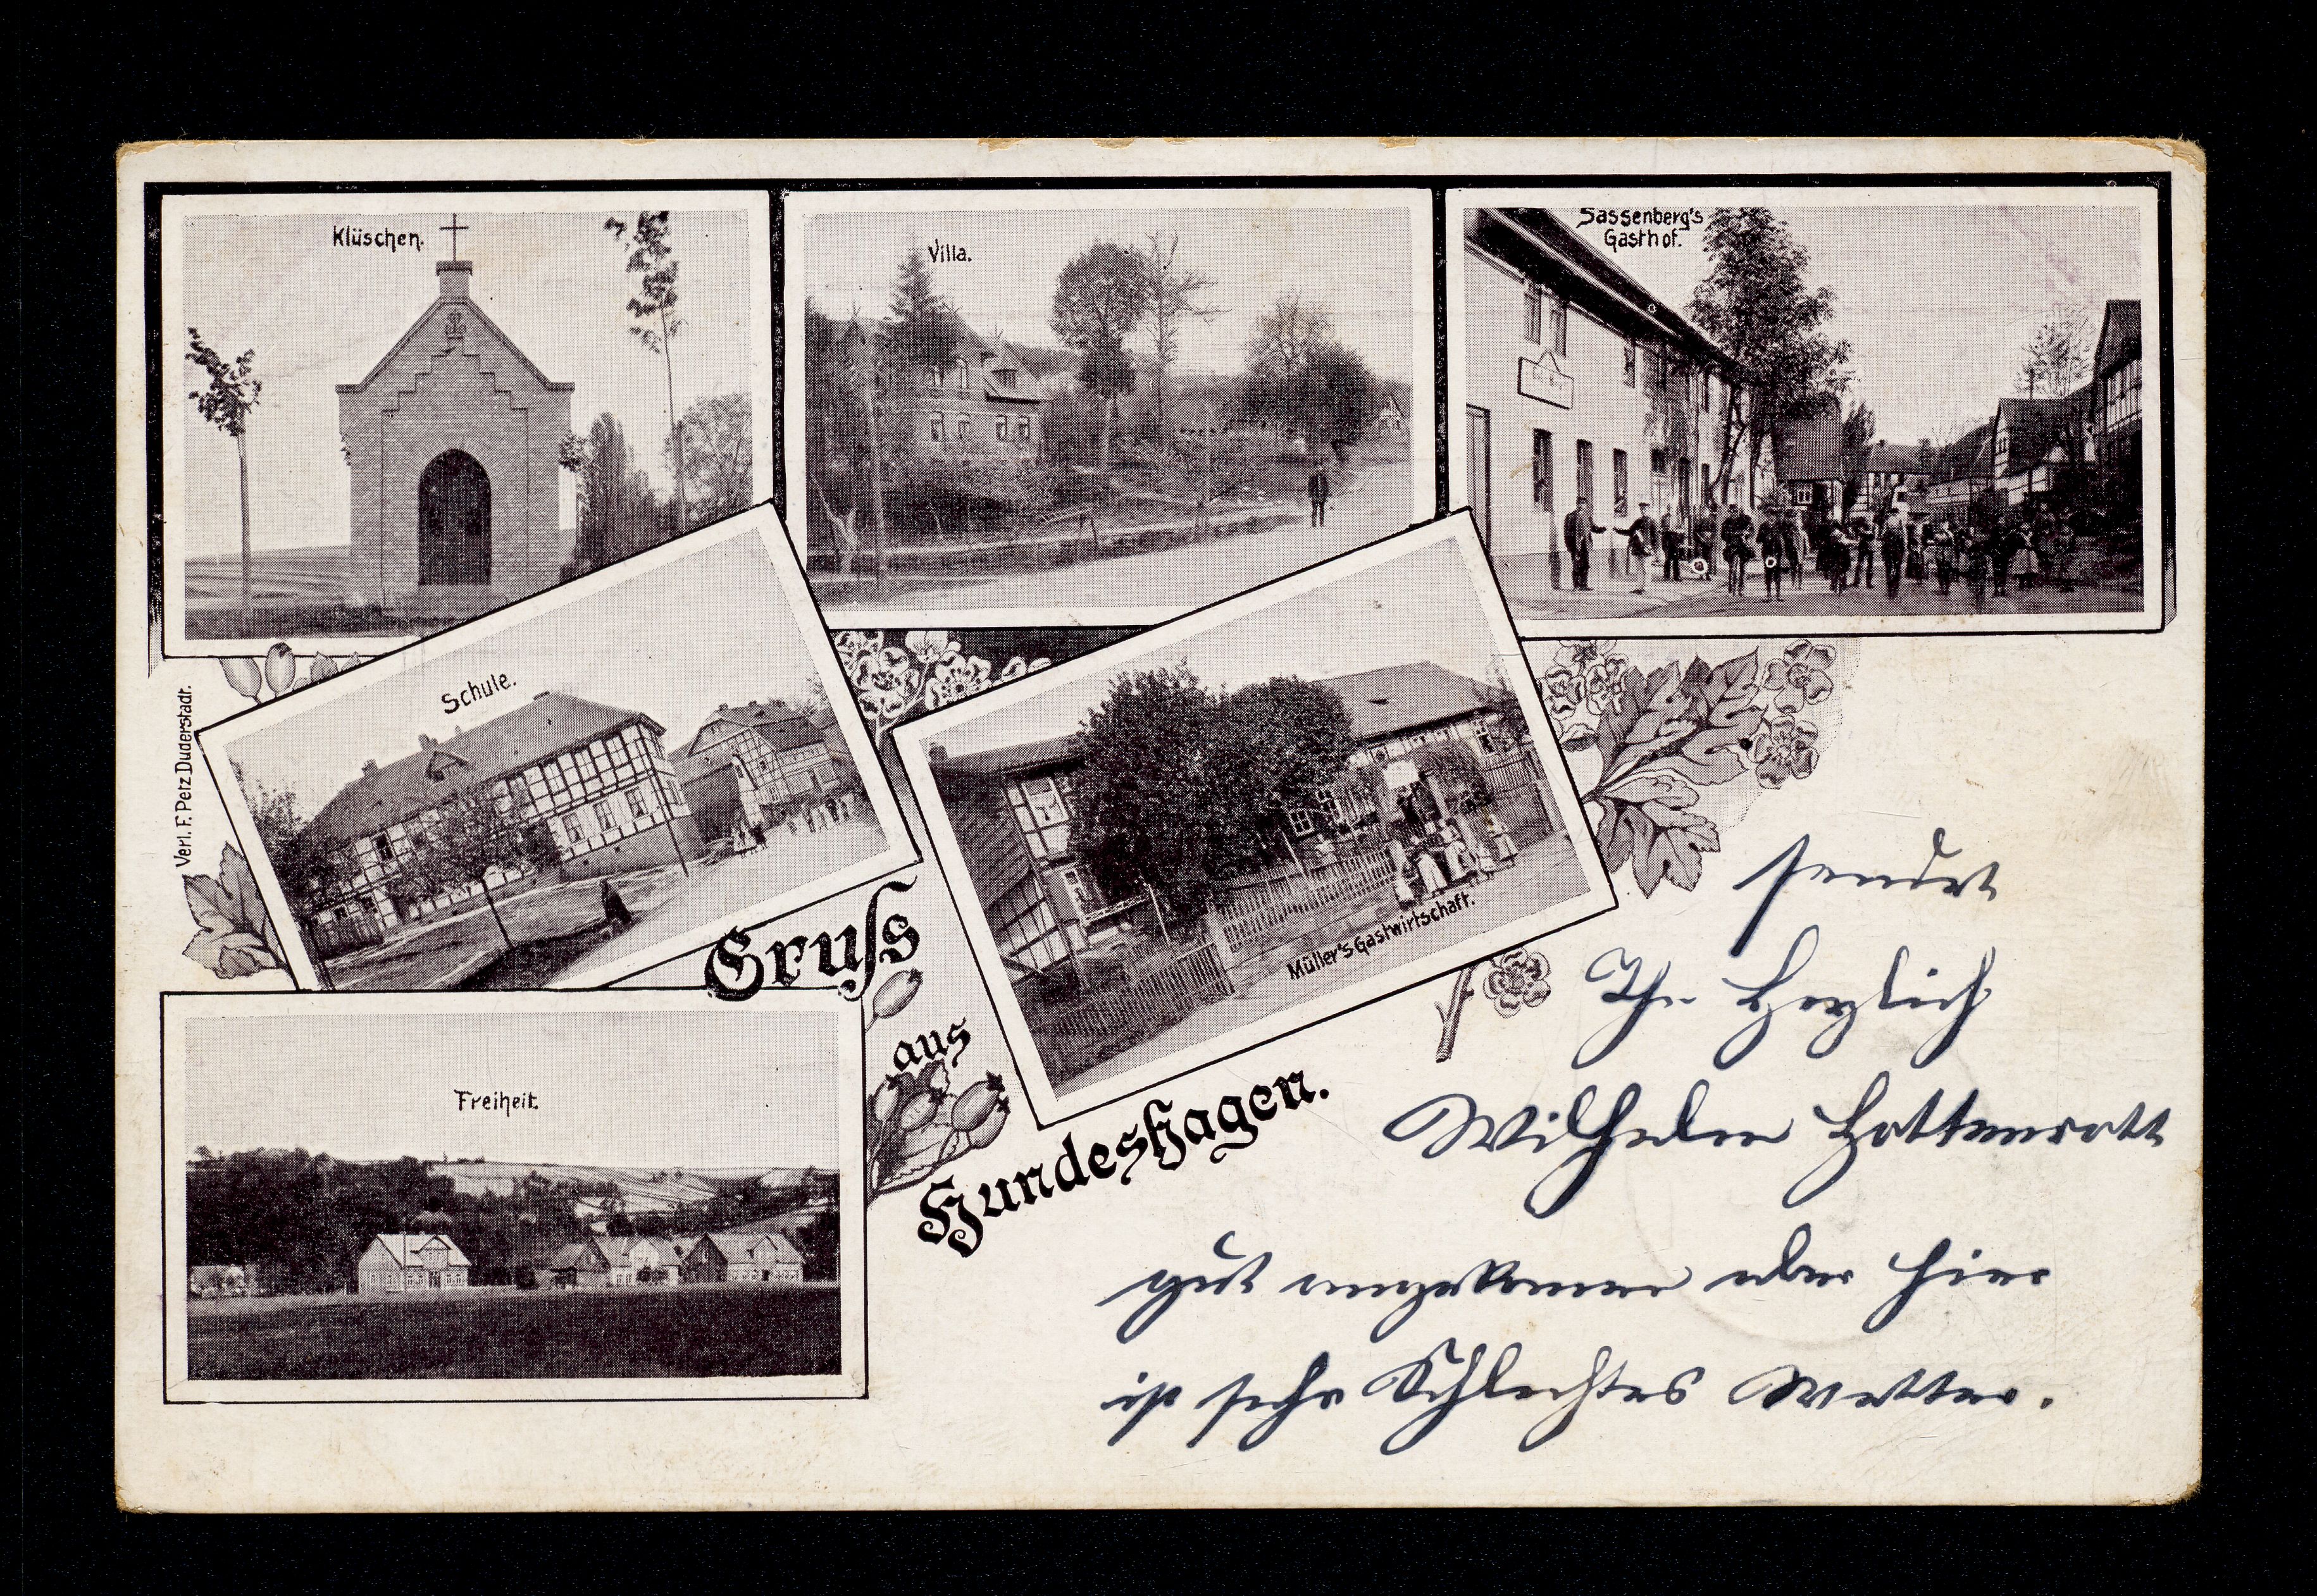 Klüschen.
Villa.
Sassenberg's
Gasthof.
Schule.
Verl. F. Petz Duderstadt.
Müller's Gastwirtschaft.
Gruſs
aus
Hundeshagen.
Freiheit.
sendet
Ihr Herzlich
Wilhelm Hottenrott
gut angekommen aber hier
ist sehr Schlechtes Wetter.